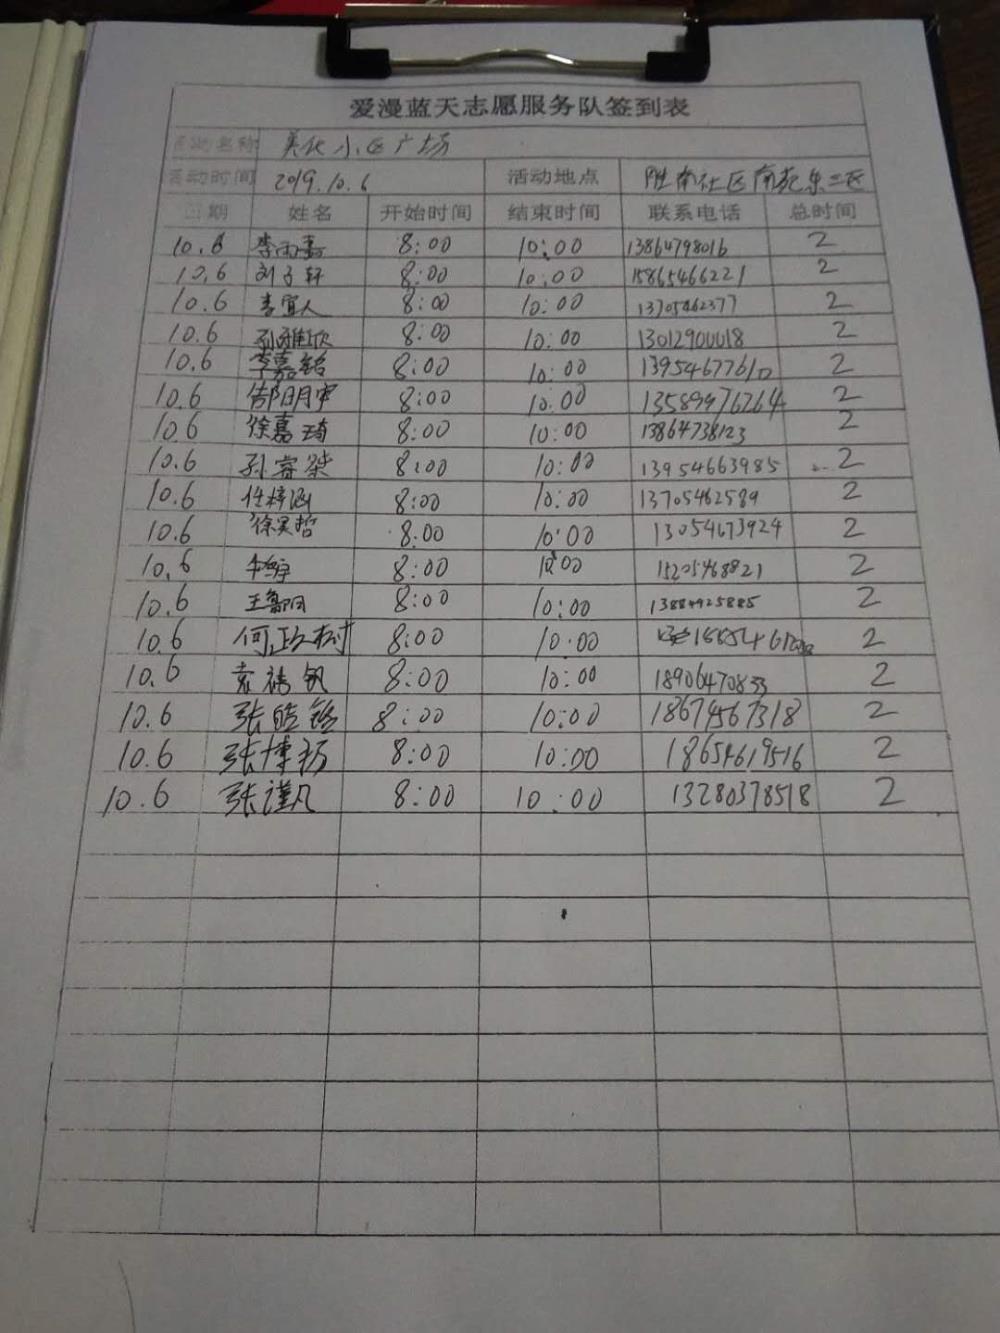 爱漫蓝天志愿服务队签到表
活动名称 美化小区广场
活动时间 2019.10.6 活动地点 胜南社区南苑东三区
日期 姓名 开始时间 结束时间 联系电话 总时间
10.6 李雨嘉 8:00 10:00 13864798016 2
10.6 刘子轩 8:00 10:00 15865466221 2
10.6 李宜人 8:00 10:00 13705462377 2
10.6 孙雅欣 8:00 10:00 13012900018 2
10.6 李嘉铭 8:00 10:00 13954677610 2
10.6 8:00 10:00 13589976764 2
10.6 徐嘉琦 8:00 10:00 13864738123 2
10.6 孙睿桀 8:00 10:00 13954663985 2
10.6 任梓涵 8:00 10:00 13705462589 2
10.6 徐昊哲 8:00 10:00 13054673924 2
10.6 8:00 10:00 15205468821 2
10.6 8:00 10:00 13884925885 2
10.6 何政树 8:00 10:00 2
10.6 袁禧钒 8:00 10:00 18906470833 2
10.6 张皓铭 8:00 10:00 18674567318 2
10.6 张博扬 8:00 10:00 18654619516 2
10.6 张谨凡 8:00 10:00 13280378518 2